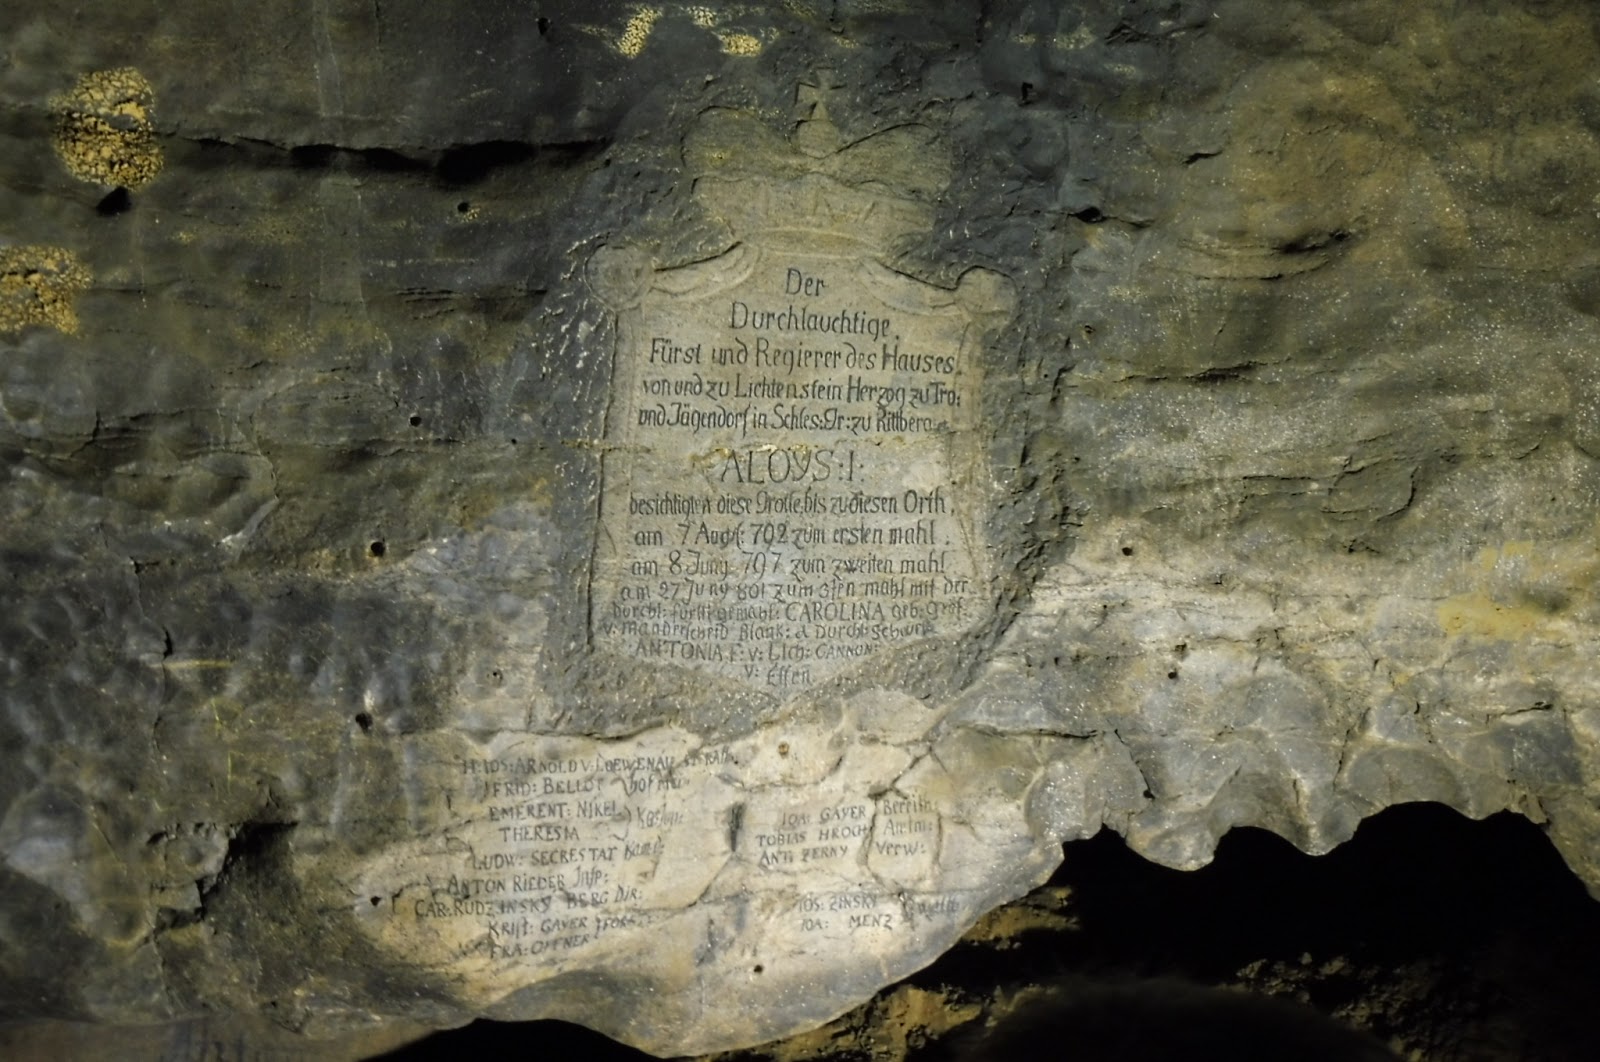 Der
Durchlauchtige
Fürst und Regierer des Hauses
von und zu Lichtenstein Herzog zu Tro:
und Jägendorf in Schles: Gr: zu Rittberg
ALOYS: I:
besichtigten diese Grotte bis zu diesen Orth,
am 7 Augst: 792 zum ersten mahl.
am 8 Juny 797 zum zweiten mahl
am 27 Juny 801 zum 3ten mahl mit der
Durchl: fürstl: gemahl: CAROLINA geb: Gräf:
v: Manderscheid Blank: & Durchl:
ANTONIA F: v: Lich: CANNON:
v: Essen
H: IOS: ARNOLD V: LOEWENAU
FRID: BELLOT
EMERENT: NIKEL
THERESIA
LUDW: SECRESTAT
ANTON RIEDER Insp:
CAR: RUDZINSKY BERG DIR:
Krist: GAYER
FRA: OFFNER
IOA: GAYER Bereitn:
TOBIAS HROCH Amtm:
ANT: ZERNY Verw:
IOS: ZINSKY
IOA: MENZ